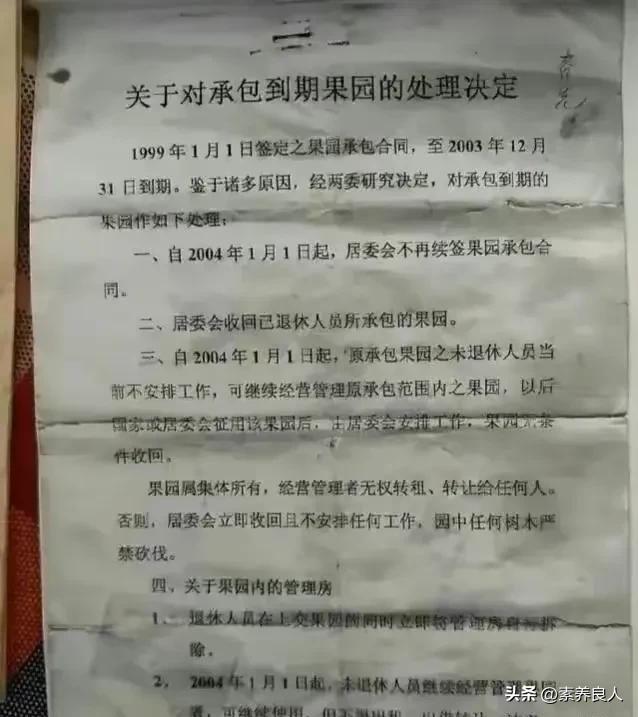 关于对承包到期果园的处理决定
1999年1月1日签定之果园承包合同，至2003年12月
31日到期。鉴于诸多原因，经两委研究决定，对承包到期的
果园作如下处理：
一、自2004年1月1日起，居委会不再续签果园承包合
同。
二、居委会收回已退休人员所承包的果园。
三、自2004年1月1日起，原承包果园之未退休人员当
前不安排工作，可继续经营管理原承包范围内之果园，以后
国家或居委会征用该果园后，由居委会安排工作，果园无条
件收回。
果园属集体所有，经营管理者无权转租、转让给任何人。
否则，居委会立即收回且不安排任何工作，园中任何树木严
禁砍伐。
四、关于果园内的管理房
1、退休人员在上交果园的同时立即将管理房自行拆
除。
2、2004年1月1日起，未退休人员继续经营管理果园
者，可继续使用，但不
头条 @素养良人